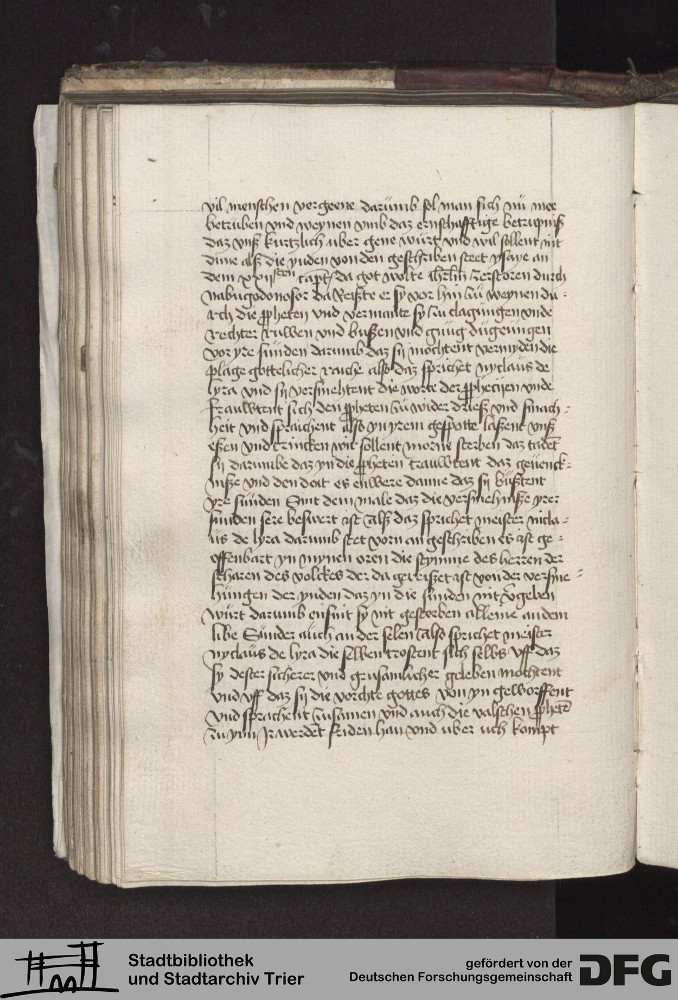 vil menschen vergeene darumb sol man sich nü mee
betruben vnd weynen vmb daz ernschafftige betrupniß
daz vnß kurtzlich uber gene wurt vnd wil sollent nit
dune alß die yuden von den geschriben steet ysaye an
dem xxijsten capt. da got wolte ihrlm zerstoren durch
nabugodonosor da reißte er sy vor hin zü weynen du-
rch die ppheten vnd vermante sy zu clagungen vnde
rechter rüwen vnd büßen vnd gnüg dügeungen
vor yre sunden darumb daz sij mochtent vermyden die
plage gottelicher rache also daz sprichet nyclaüs de
lyra vnd sij versmehtent die worte der pphecijen vnde
frauwtent sich den ppheten zü wider drieß vnd smach-
heit vnd sprachent also yn yrem gespotte laßent vnß
eßen vnd trincken wir sollent morne sterben daz tadet
sij darumbe daz yn die ppheten trauwtent daz geuenck-
niße vnd den doit es enwere danne daz sij büstent
yre sunden Sint dem male daz die versmehniße yrer
sunden sere beswert ist Alß daz sprichet meister nicla-
us de lyra darumb stet vorn an geschriben Es ist ge-
offenbart yn mynen oren die stymme des herren der
scharen des volckes der da gereißet ist von der versme-
hungen der yuden daz yn die sunden nit vgeben
würt darumb ensint sy nit gestorben alleine an dem
libe Sunder auch an der selen Also sprichet meister
nyclaüs de lyra die selben trostent sich selbs vff daz
sy dester sicherer vnd geusamlicher geleben mochtent
vnd vff daz sij die vorchte gottes von yn geworffent
vnd sprachent zusamen vnd auch die valschen pphete
zu ynn Ir werdet friden han vnd uber uch kompt
Stadtbibliothek
und Stadtarchiv Trier
gefördert von der
Deutschen Forschungsgemeinschaft
DFG